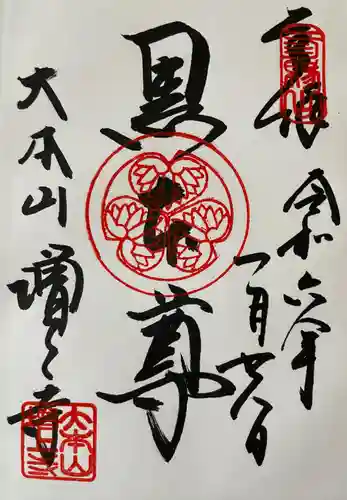 奉拝
令和六年
一月廿八日
黒本尊
大本山増上寺
大本山
増上寺